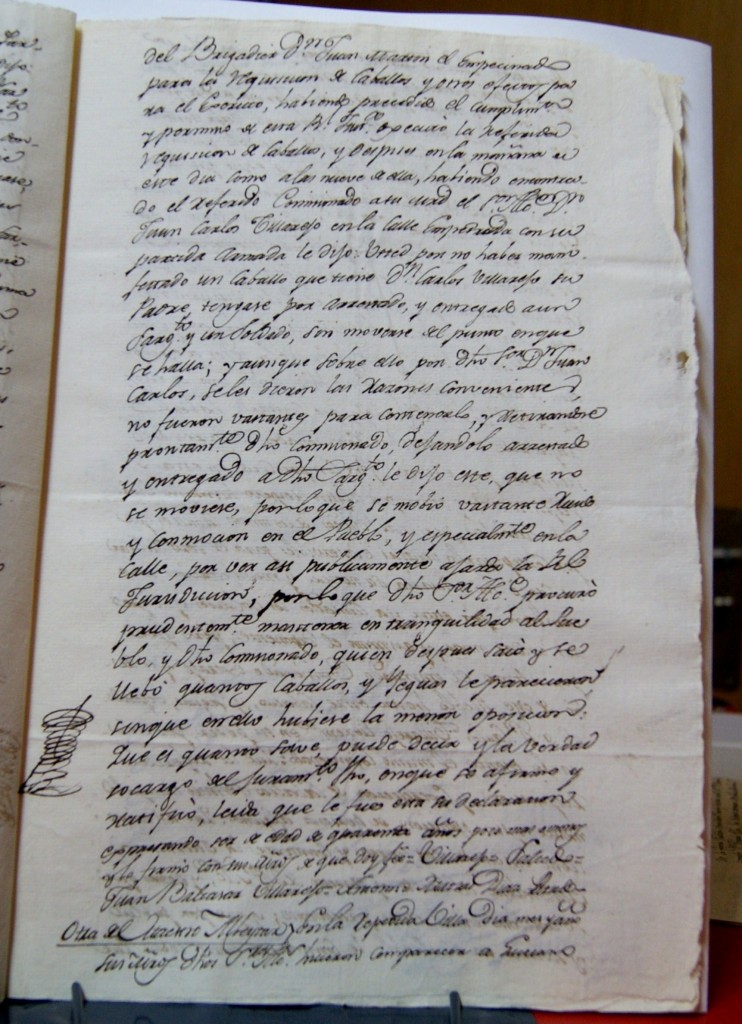 del Brigadier Dn Juan Martin el Empecinado
para la requisicion de Caballos y otros efectos pa
ra el Exercito, habiendo precedido el cumplimto
y permiso de esta Rl Jurn. executó la referida
requisicion de Caballos, y despues en la mañana de
este dia como a las nueve de ella, habiendo encontra
do el referido Comisionado a su md el Sor Alce Dn
Juan Carlos Villarejo en la Calle Empedrada con su
partida armada le dijo: Usted por no haber mani
festado un Caballo que tiene Dn Carlos Villarejo su
Padre, tengase por arrestado, y entregado a un
Sargto y un Soldado, sin moverse del punto en que
se halla; y aunque sobre ello por dho Sor Dn Juan
Carlos, se les dieron las razones convenientes,
no fueron vastantes para contenerlo, y retirandose
prontamte dho Comisionado, dejandolo arrestado
y entregado a dho Sargto le dijo este, que no
se moviese, por lo que se mobió vastante Ruido
y conmocion en el Pueblo, y especialmte en la
Calle, por ver asi publicamente ajarda la Rl
Jurisdicion, por lo que dho Sor Alce procuró
prudentemte mantener en tranquilidad al Pue
blo, y dho Comisionado, quien despues sacó y se
llebó quantos Caballos, y Yeguas le parecieron
sin que en ello hubiese la menor oposicion:
Que es quanto save, puede decir y la verdad
so cargo del juramto dho, en que se afirmó y
ratificó, leida que le fue esta su declaracion
expresando ser de edad de quarenta años poco mas o menos
y lo firmó con sus mrds de que doy fee= Villarejo=
Juan Baltasar Villarejo= Antonio Diaz
Otra de Y En la repetida Villa dia mes y año
sus mrds dhos Sres Alces hicieron comparecer a